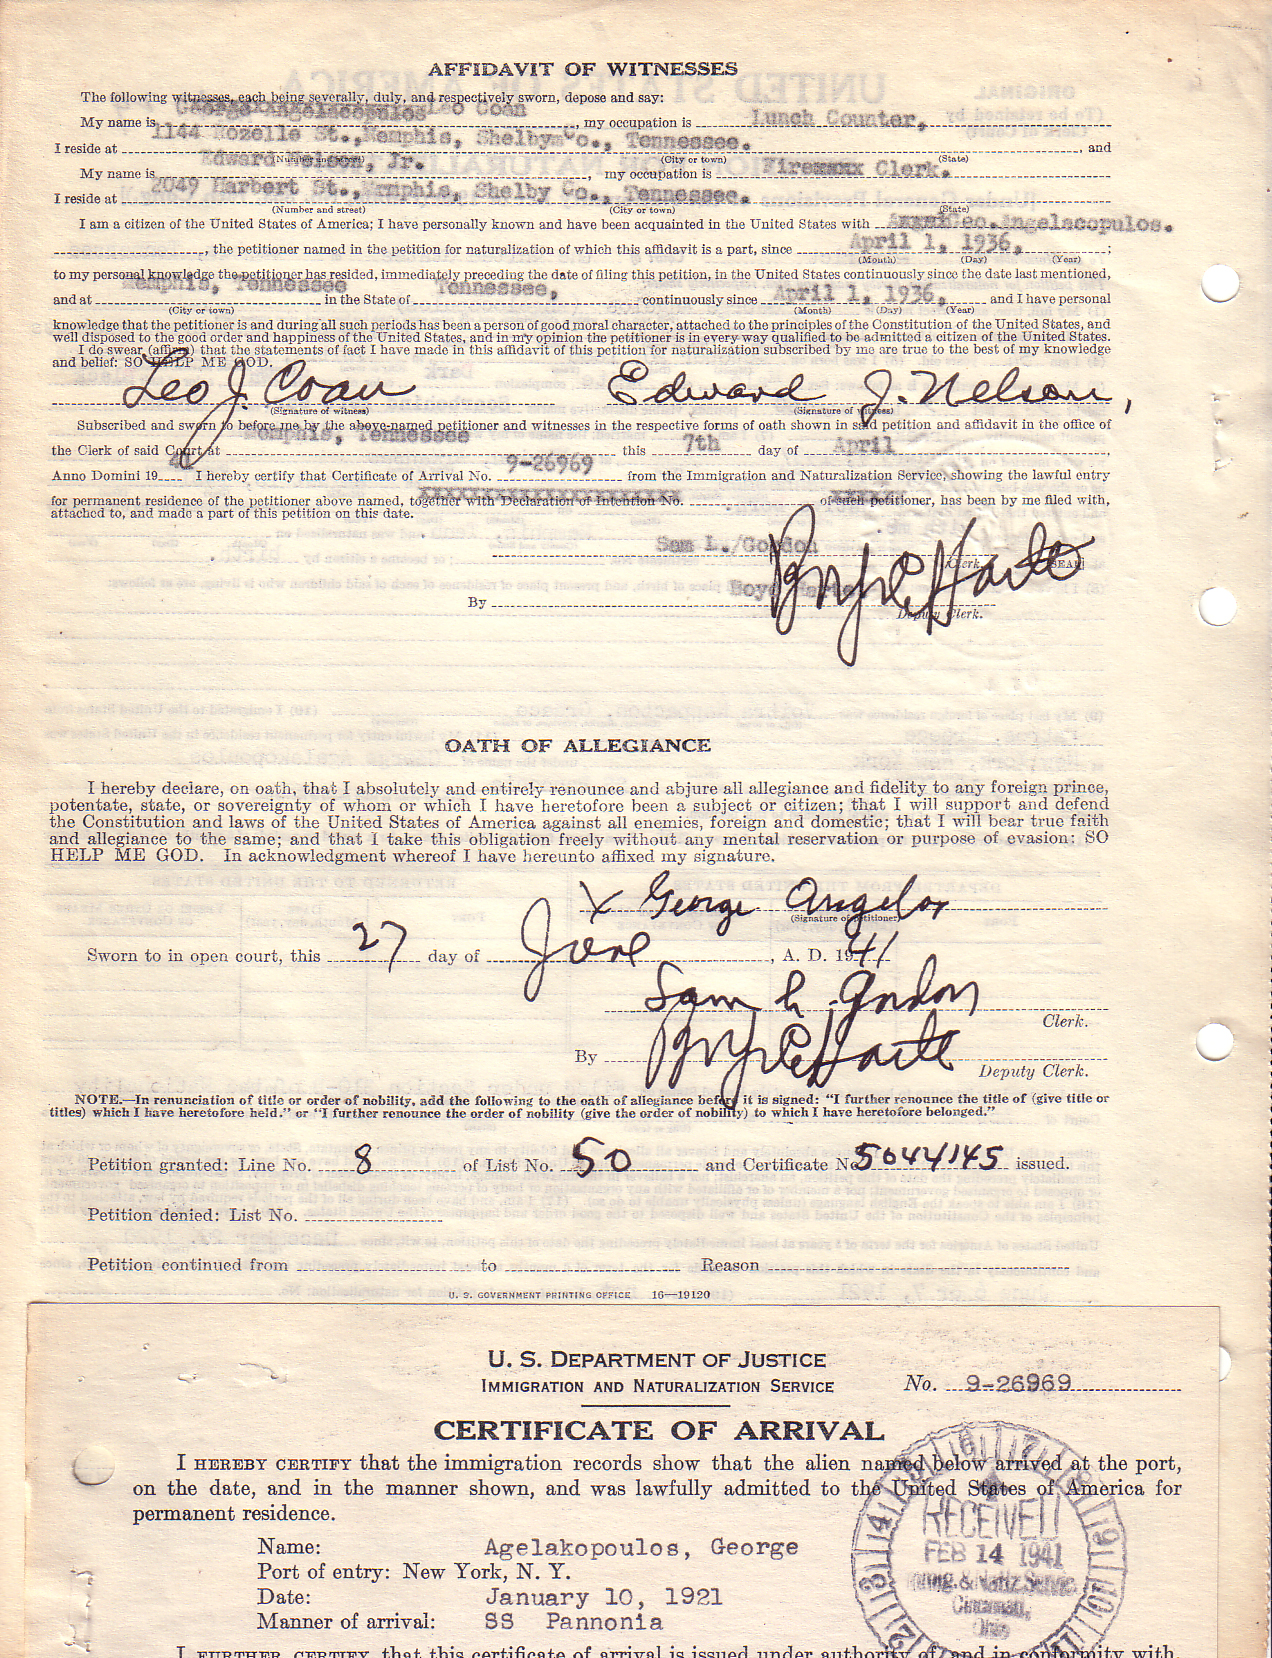 AFFIDAVIT OF WITNESSES
The following witnesses, each being severally, duly, and respectively sworn, depose and say:
My name is Leo Coan, my occupation is Lunch Counter,
I reside at 1144 Rozelle St., Memphis, Shelby Co., Tennessee. , and
(Number and street) (City or town) (State)
My name is Edward Nelson, Jr. , my occupation is Fireman Clerk.
I reside at 2049 Harbert St., Memphis, Shelby Co., Tennessee.
(Number and street) (City or town) (State)
I am a citizen of the United States of America; I have personally known and have been acquainted in the United States with Geo. Angelacopulos.
, the petitioner named in the petition for naturalization of which this affidavit is a part, since April 1, 1936, ;
(Month) (Day) (Year)
to my personal knowledge the petitioner has resided, immediately preceding the date of filing this petition, in the United States continuously since the date last mentioned,
and at Memphis, Tennessee in the State of Tennessee, continuously since April 1, 1936, and I have personal
(City or town) (Month) (Day) (Year)
knowledge that the petitioner is and during all such periods has been a person of good moral character, attached to the principles of the Constitution of the United States, and
well disposed to the good order and happiness of the United States, and in my opinion the petitioner is in every way qualified to be admitted a citizen of the United States.
I do swear (affirm) that the statements of fact I have made in this affidavit of this petition for naturalization subscribed by me are true to the best of my knowledge
and belief: SO HELP ME GOD.
Leo J. Coan Edward J. Nelson,
(Signature of witness) (Signature of witness)
Subscribed and sworn to before me by the above-named petitioner and witnesses in the respective forms of oath shown in said petition and affidavit in the office of
the Clerk of said Court at Memphis, Tennessee this 7th day of April ,
Anno Domini 19 I hereby certify that Certificate of Arrival No. 9-26969 from the Immigration and Naturalization Service, showing the lawful entry
for permanent residence of the petitioner above named, together with Declaration of Intention No. of such petitioner, has been by me filed with,
attached to, and made a part of this petition on this date.
Sam L. Gordon
Clerk. [SEAL]
By Boyd Harte
Deputy Clerk.
OATH OF ALLEGIANCE
I hereby declare, on oath, that I absolutely and entirely renounce and abjure all allegiance and fidelity to any foreign prince,
potentate, state, or sovereignty of whom or which I have heretofore been a subject or citizen; that I will support and defend
the Constitution and laws of the United States of America against all enemies, foreign and domestic; that I will bear true faith
and allegiance to the same; and that I take this obligation freely without any mental reservation or purpose of evasion: SO
HELP ME GOD. In acknowledgment whereof I have hereunto affixed my signature.
X George Angelos
(Signature of petitioner)
Sworn to in open court, this 27 day of June , A. D. 1941
Sam L. Gordon
Clerk.
By
Deputy Clerk.
NOTE.—In renunciation of title or order of nobility, add the following to the oath of allegiance before it is signed: "I further renounce the title of (give title or
titles) which I have heretofore held." or "I further renounce the order of nobility (give the order of nobility) to which I have heretofore belonged."
Petition granted: Line No. 8 of List No. 50 and Certificate No. 5044145 issued.
Petition denied: List No.
Petition continued from to Reason
U. S. GOVERNMENT PRINTING OFFICE 16—19120
U. S. DEPARTMENT OF JUSTICE
IMMIGRATION AND NATURALIZATION SERVICE
No. 9-26969
CERTIFICATE OF ARRIVAL
I HEREBY CERTIFY that the immigration records show that the alien named below arrived at the port,
on the date, and in the manner shown, and was lawfully admitted to the United States of America for
permanent residence.
Name: Agelakopoulos, George
Port of entry: New York, N. Y.
Date: January 10, 1921
Manner of arrival: SS Pannonia
RECEIVED
FEB 14 1941
Immig. & Natlz Service
Cincinnati,
Ohio
I FURTHER CERTIFY that this certificate of arrival is issued under authority of, and in conformity with,